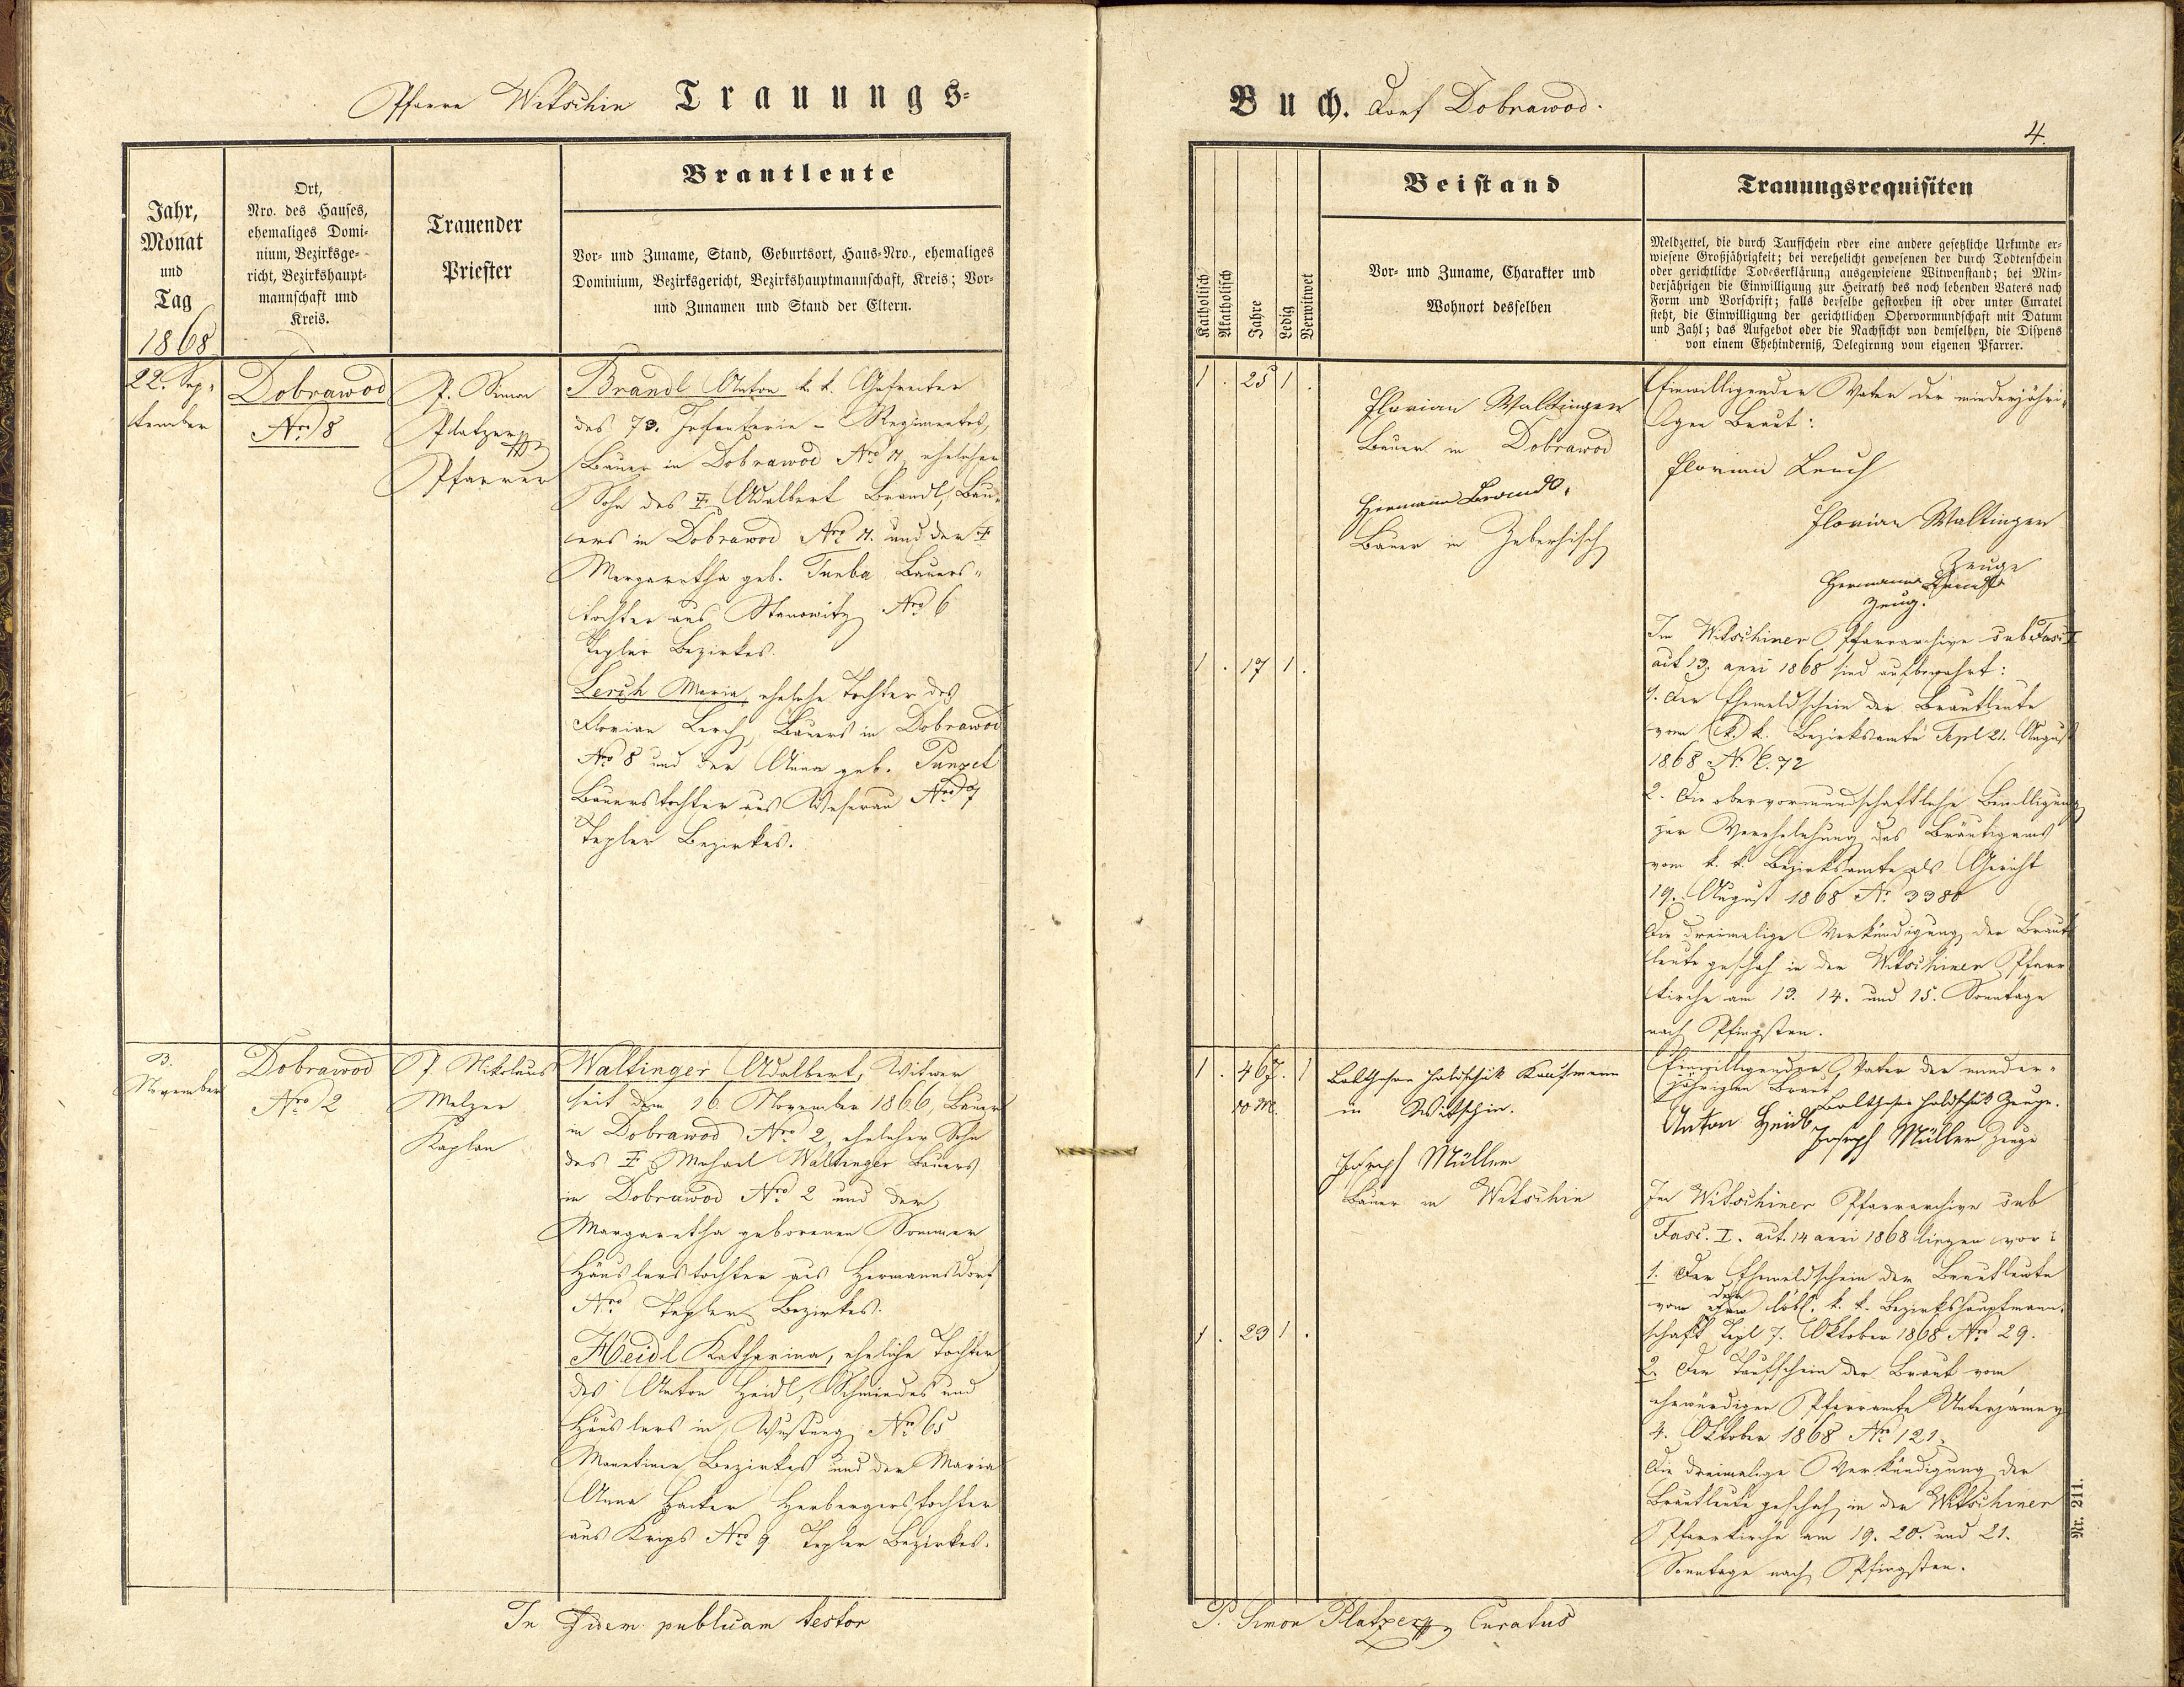 Pfarre Witschin Trauungs-
Jahr,
Monat
und
Tag
1868
Ort,
Nro. des Hauses,
ehemaliges Domi-
nium, Bezirksge-
richt, Bezirkshaupt-
mannschaft und
Kreis.
Trauender
Priester
Brautleute
Vor- und Zuname, Stand, Geburtsort, Haus-Nro., ehemaliges
Dominium, Bezirksgericht, Bezirkshauptmannschaft, Kreis; Vor-
und Zunamen und Stand der Eltern.
22. Sep-
tember
Dobrawod
Nro 8
P. Simon
Platzer
Pfarrer
Brandl Anton k. k. Gefreiter
des 73. Infanterie-Regimentes,
Bauer in Dobrawod Nro 11, ehelicher
Sohn des ┼ Adalbert Brandl, Bau-
ers in Dobrawod Nro 11. und der ┼
Margaretha geb. Turba Bauers-
tochter aus Stanowitz Nro 6
Tepler Bezirkes.
Lerch Maria, eheliche Tochter des
Florian Lerch, Bauers in Dobrawod
Nro 8 und der Anna geb. Punzet
Bauerstochter aus Weserau Nro 7
Tepler Bezirkes.
3.
November
Dobrawod
Nro 2
P. Nikolaus
Melzer
Kaplan
Waltinger Adalbert, Witwer
seit dem 16. November 1866, Bauer
in Dobrawod Nro 2, ehelicher Sohn
des ┼ Michael Waltinger Bauers
in Dobrawod Nro 2 und der
Margaretha geborenen Sommer
Häuslerstochter aus Hermannsdorf
Nro Tepler Bezirkes.
Heidl Katharina, eheliche Tochter
des Anton Heidl, Schmiedes und
Häuslers in Wustung Nro 65
Manetiner Bezirkes und der Maria
Anna Hacker Herbergerstochter
aus Krips Nro 9 Tepler Bezirkes.
In fidem publicam testor
Buch. Dorf Dobrawod.
4.
Katholisch
Akatholisch
Jahre
Ledig
Verwitwet
Beistand
Vor- und Zuname, Charakter und
Wohnort desselben
Trauungsrequisiten
Meldzettel, die durch Taufschein oder eine andere gesetzliche Urkunde er-
wiesene Großjährigkeit; bei verehelicht gewesenen der durch Todtenschein
oder gerichtliche Todeserklärung ausgewiesene Witwenstand; bei Min-
derjährigen die Einwilligung zur Heirath des noch lebenden Vaters nach
Form und Vorschrift; falls derselbe gestorben ist oder unter Curatel
steht, die Einwilligung der gerichtlichen Obervormundschaft mit Datum
und Zahl; das Aufgebot oder die Nachsicht von demselben, die Dispens
von einem Ehehinderniß, Delegirung vom eigenen Pfarrer.
1 . 25 1 .
Florian Waltinger
Bauer in Dobrawod
Hermann Brandl,
Bauer in
Einwilligender Vater der minderjähri-
gen Braut:
Florian Lerch
Florian Waltinger
Zeuge
Hermann Brandl
Zeug.
1 . 17 1 .
Im Witschiner Pfarrarchive sub Fasc I
act 13. anni 1868 sind aufbewahrt:
1. Der Ehemeldschein der Brautleute
vom k. k. Bezirksamte Tepl 21. August
1868 N. E. 72
2. Die obervormundschaftliche Bewilligung
zur Verehelichung des Bräutigams
vom k. k. Bezirksamte als Gericht
19. August 1868 Nr. 3380
Die dreimalige Verkündigung der Braut
leute geschah in der Witschiner Pfarr
kirche am 13. 14. und 15. Sonntage
nach Pfingsten.
1 . 46 J. . 1
10 M.
Balthasar Kaufmann
in Witschin.
Joseph Müller
Bauer in Witschin
Einwilligender Vater der minder-
jährigen Braut
Balthasar Zeuge.
Anton Heidl
Joseph Müller Zeuge
Im Witschiner Pfarrarchive sub
Fasc. I. act. 14 anni 1868 liegen vor:
1. Der Ehemeldschein der Brautleute
vom der löbl. k. k. Bezirkshauptmann-
schaft Tepl 7. Oktober 1868 Nro 29.
1 . 23 1 .
2. Der Taufschein der Braut vom
ehrwürdigen Pfarramte Unterjamny
4. Oktober 1868 Nro 121.
Die dreimalige Verkündigung der
Brautleute geschah in der Witschiner
Pfarrkirche am 19. 20. und 21.
Sonntage nach Pfingsten.
Nr. 211.
P. Simon Platzer Curatus